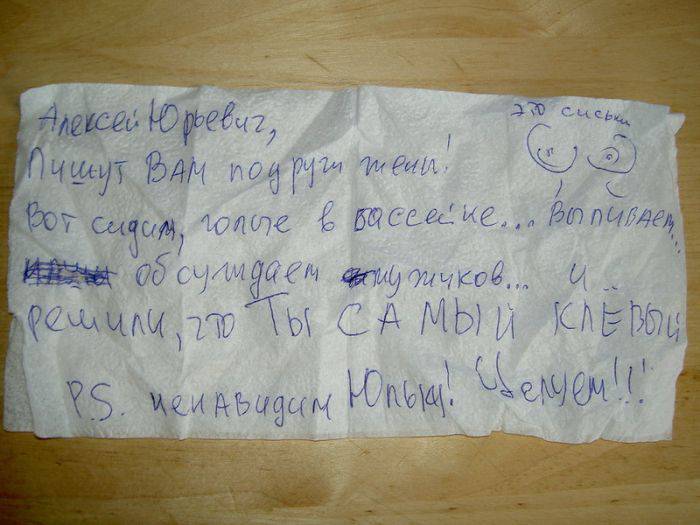 Алексей Юрьевич,
это сиськи
Пишут ВАМ подруги жены!
Вот сидим, голые в бассейне... Выпиваем...
обсуждаем мужиков... и..
решили, что ТЫ САМЫЙ КЛЁВЫЙ
P.S. ненавидим Юльку! Целуем!!!